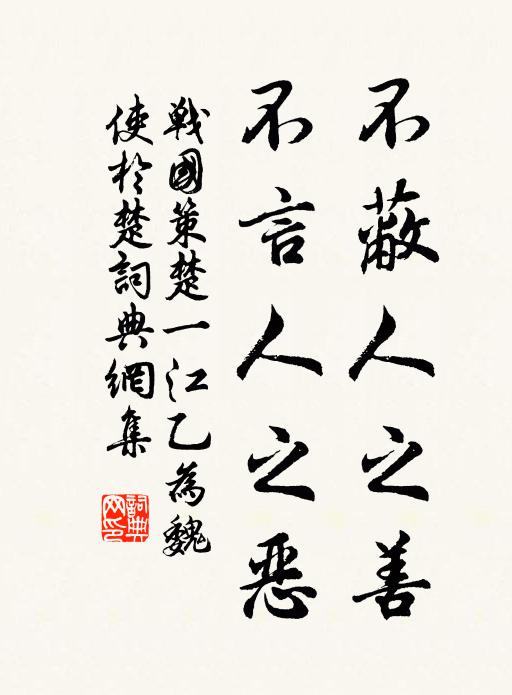 不蔽人之善
不言人之惡
戰國策楚一江乙為魏
使於楚詞典網集
詞典
网印